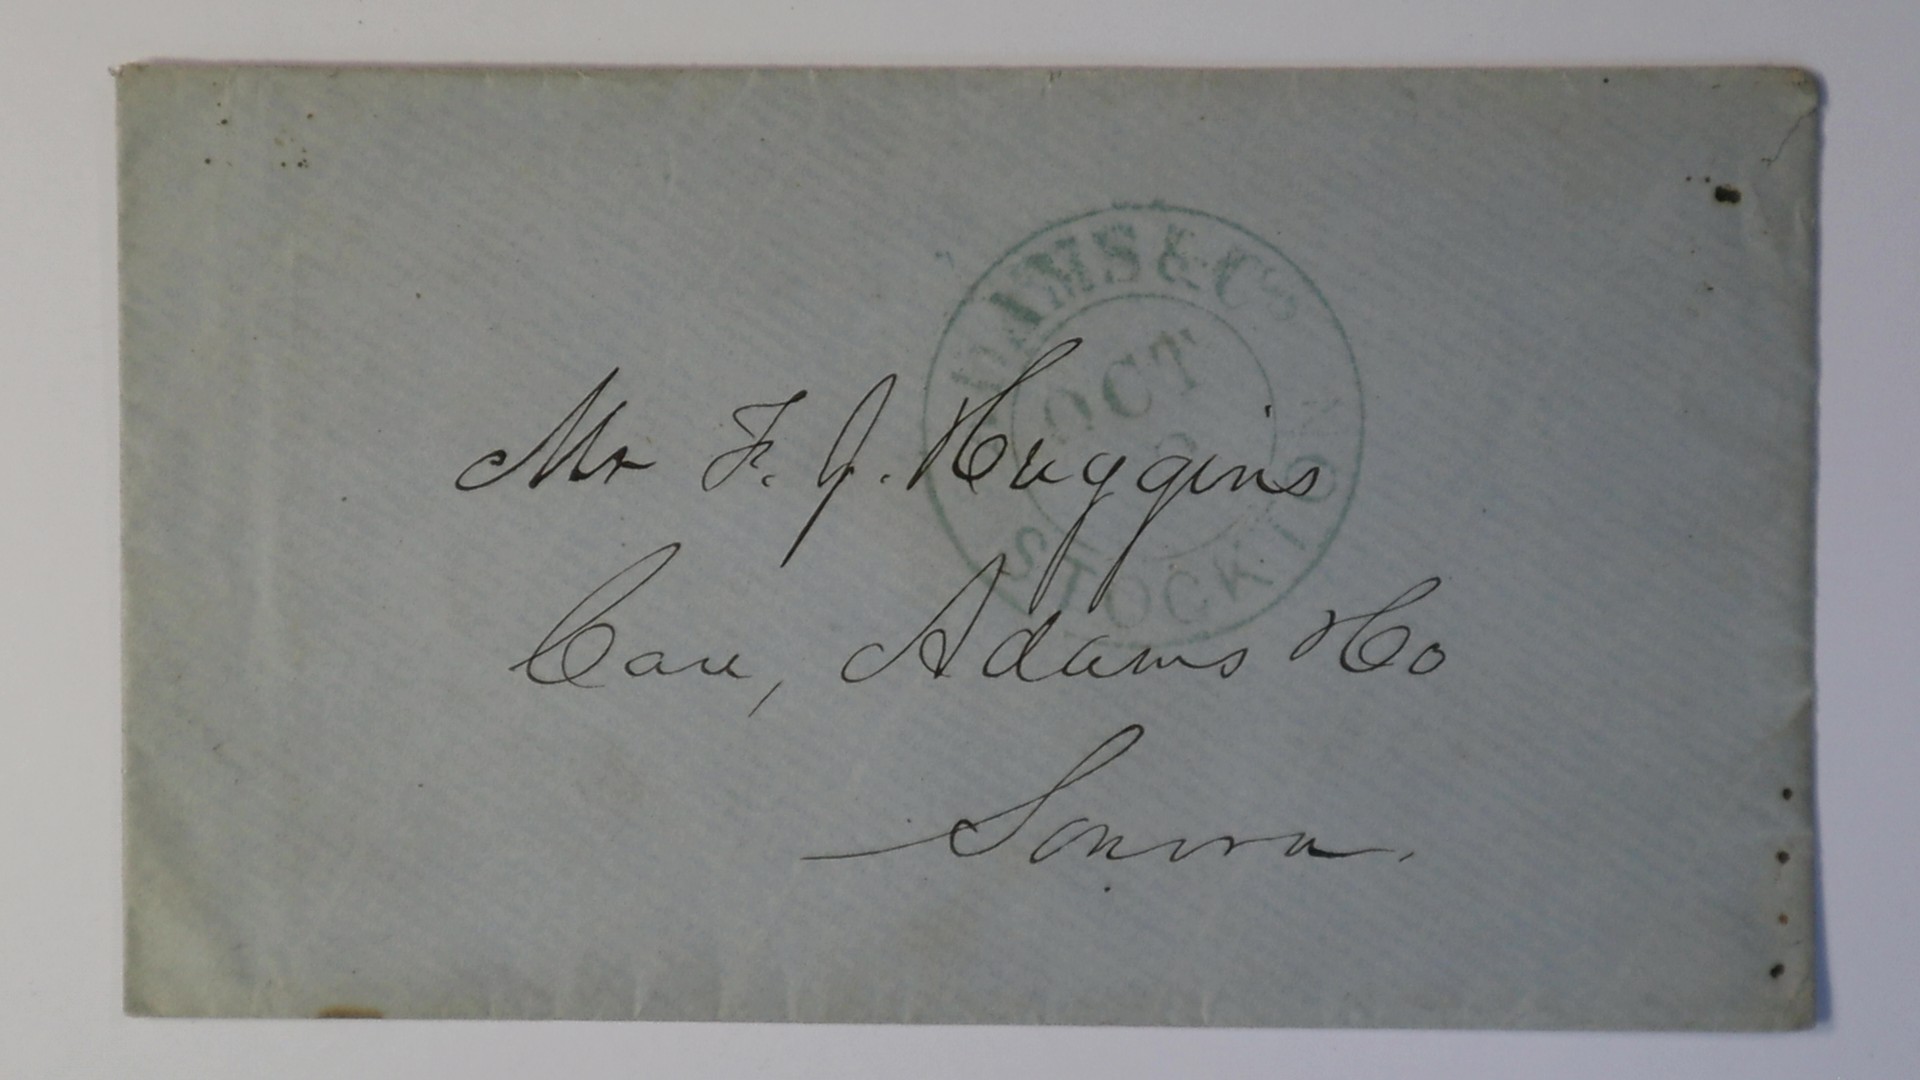 ADAMS & Co
OCT
STOCKTON
Mr F. J. Huggins
Care, Adams & Co
Sonora.